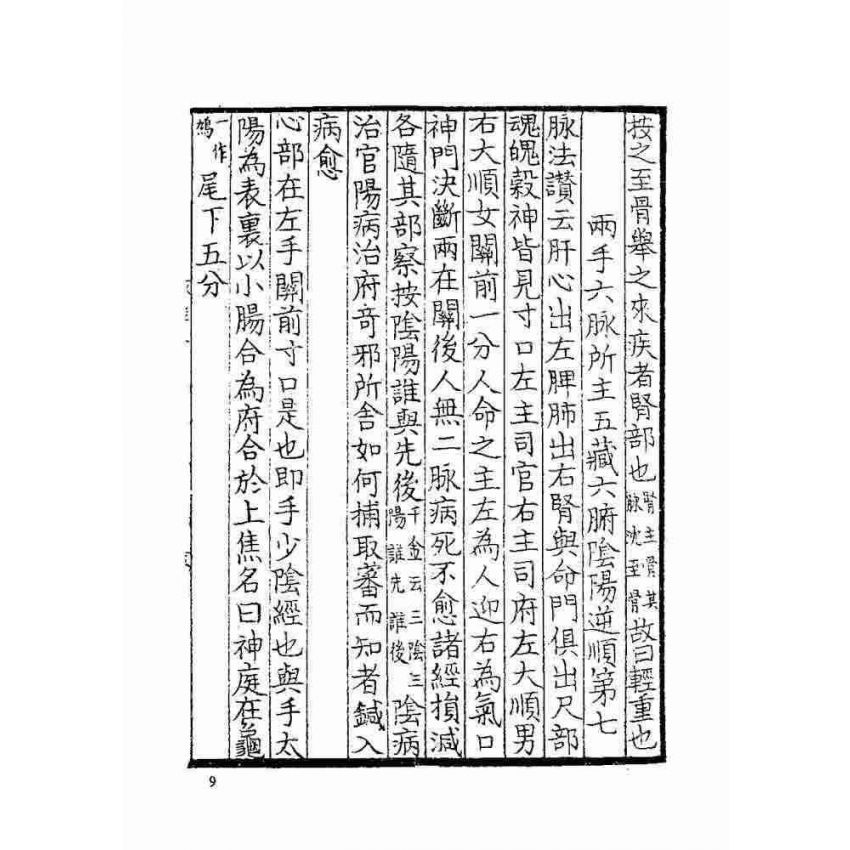 按之至骨舉之來疾者腎部也腎主骨其脉沈至骨故曰輕重也
兩手六脉所主五藏六腑陰陽逆順第七
脉法讚云肝心出左脾肺出右腎與命門俱出尺部
魂魄穀神皆見寸口左主司官右主司府左大順男
右大順女關前一分人命之主左為人迎右為氣口
神門決斷兩在關後人無二脉病死不愈諸經損減
各隨其部察按陰陽誰與先後千金云三陰三陽誰先誰後陰病
治官陽病治府奇邪所舍如何捕取審而知者鍼入
病愈
心部在左手關前寸口是也即手少陰經也與手太
陽為表裏以小腸合為府合於上焦名曰神庭在龜
一作鳩尾下五分
9